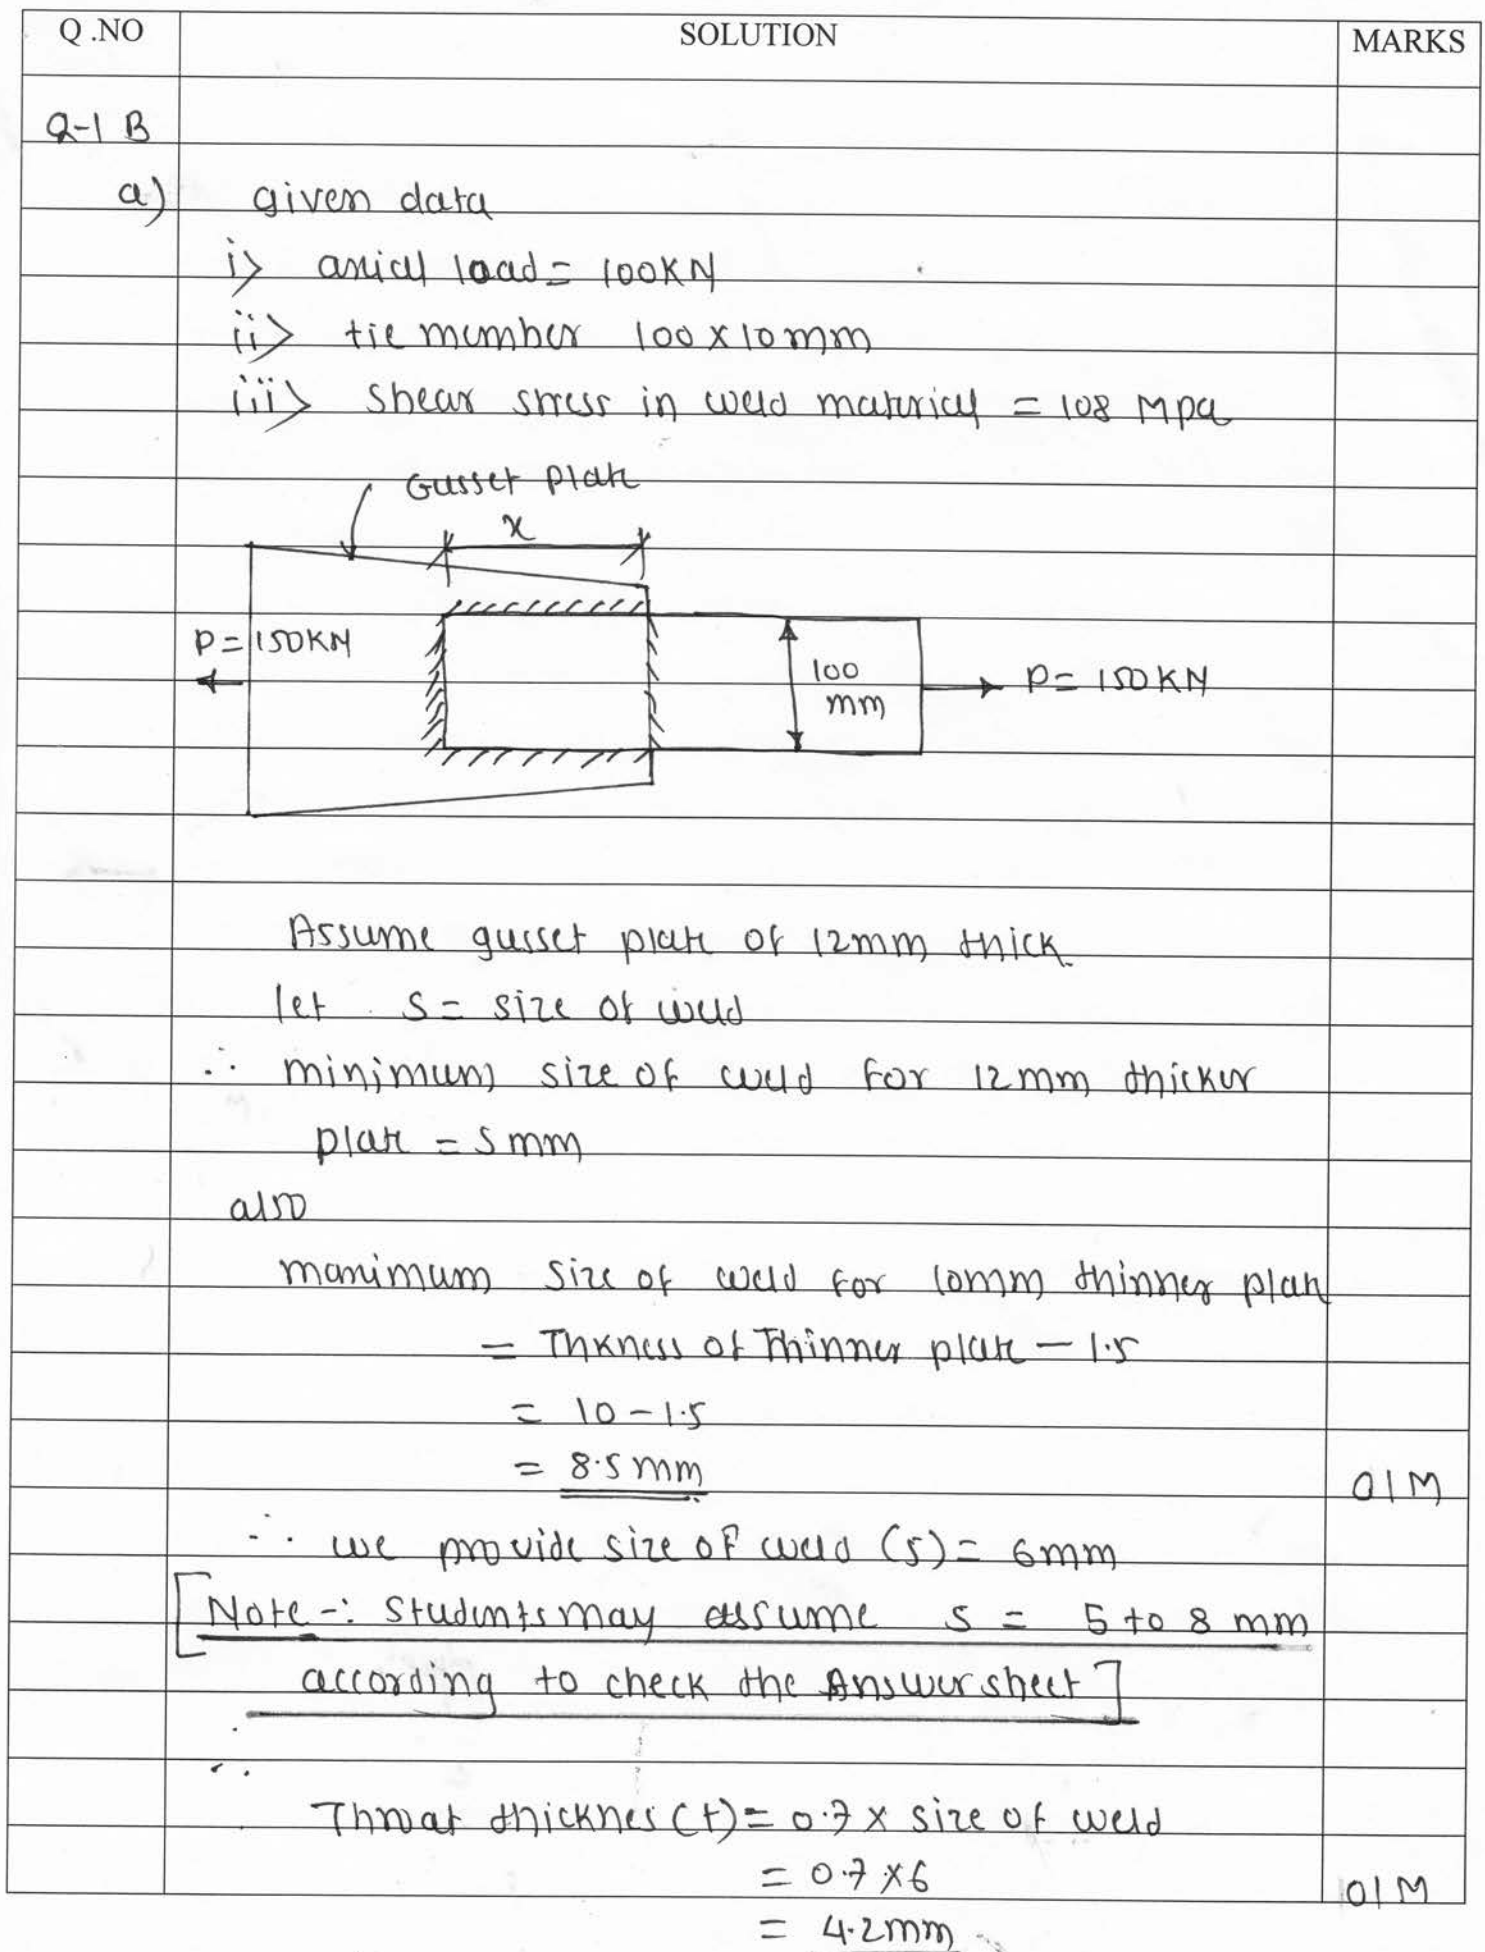 Q .NO SOLUTION MARKS
Q-1 B
a) given data
i> axial load = 100KN
ii> tie member 100 x 10 mm
iii> shear stress in weld material = 108 Mpa
Gusset plate
x
P = 150KN
100
mm
P = 150 KN
Assume gusset plate of 12mm thick.
let s = size of weld
∴ minimum size of weld for 12mm thicker
plate = 5mm
also
maximum size of weld for 10mm thinner plate
= Thkness of Thinner plate - 1.5
= 10 - 1.5
= 8.5 mm 01M
∴ we provide size of weld (s) = 6mm
[Note-: Students may assume s = 5 to 8 mm
according to check the Answer sheet]
∴
Throat thicknes (t) = 0.7 x size of weld
= 0.7 x 6 01M
= 4.2mm